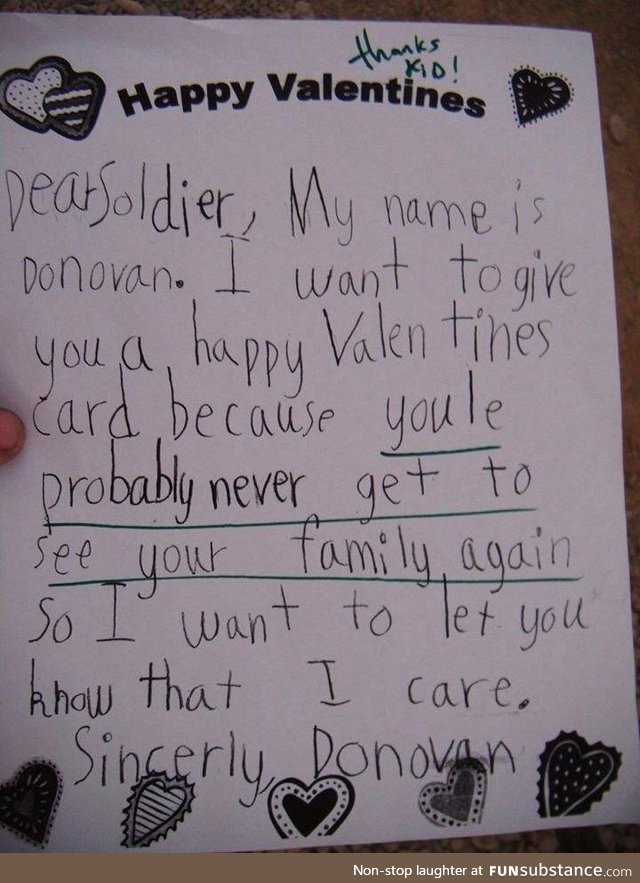 thanks
KiD!
Happy Valentines
Dear Soldier, My name is
Donovan. I want to give
you a happy Valentines
card because youle
probably never get to
see your family again
So I want to let you
know that I care.
Sincerly, Donovan
Non-stop laughter at FUNsubstance.com